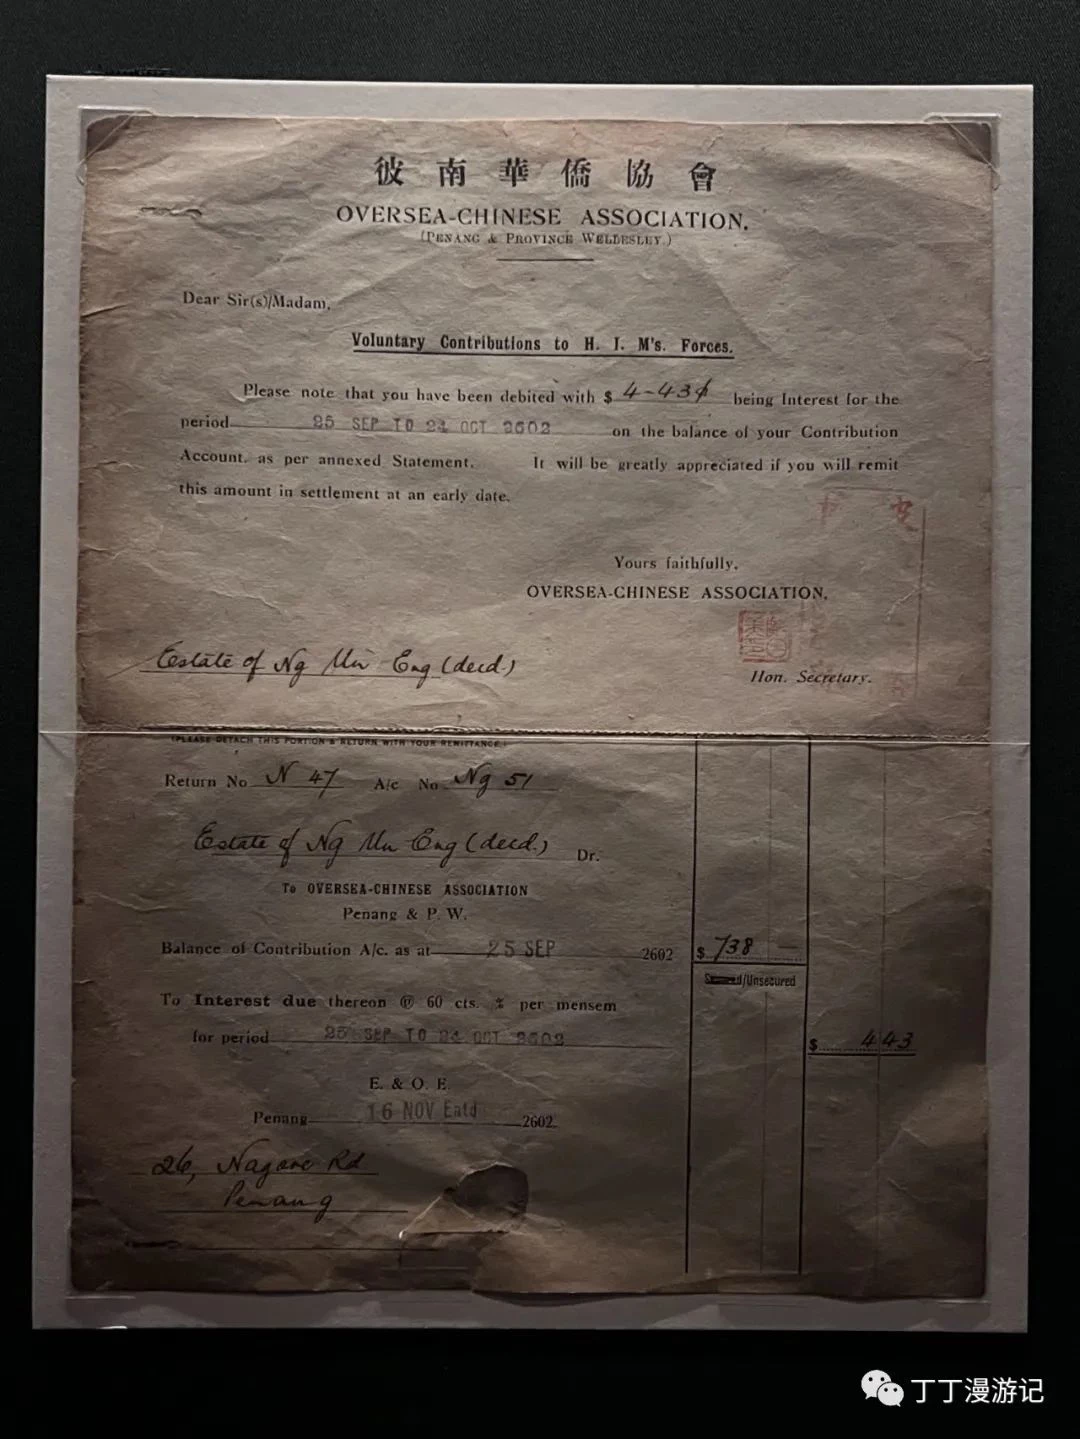 彼南華僑協會
OVERSEA-CHINESE ASSOCIATION.
(PENANG & PROVINCE WELLESLEY.)
Dear Sir(s)/Madam,
Voluntary Contributions to H. I. M's. Forces.
Please note that you have been debited with $ 4-43¢ being Interest for the
period 25 SEP TO 24 OCT 2602 on the balance of your Contribution
Account, as per annexed Statement. It will be greatly appreciated if you will remit
this amount in settlement at an early date.
Yours faithfully,
OVERSEA-CHINESE ASSOCIATION.
Hon. Secretary.
Estate of Ng Eng (decd.)
(PLEASE DETACH THIS PORTION & RETURN WITH YOUR REMITTANCE.)
Return No N 47 A/c No Ng 51
Estate of Ng Eng (decd.) Dr.
To OVERSEA-CHINESE ASSOCIATION
Penang & P. W.
Balance of Contribution A/c. as at 25 SEP 2602 $ 738 —
/Unsecured
To Interest due thereon @ 60 cts. % per mensem
for period 25 SEP TO 24 OCT 2602 $ 4 43
E. & O. E.
Penang 16 NOV 2602
26, Nagore Rd
Penang
丁丁漫游记